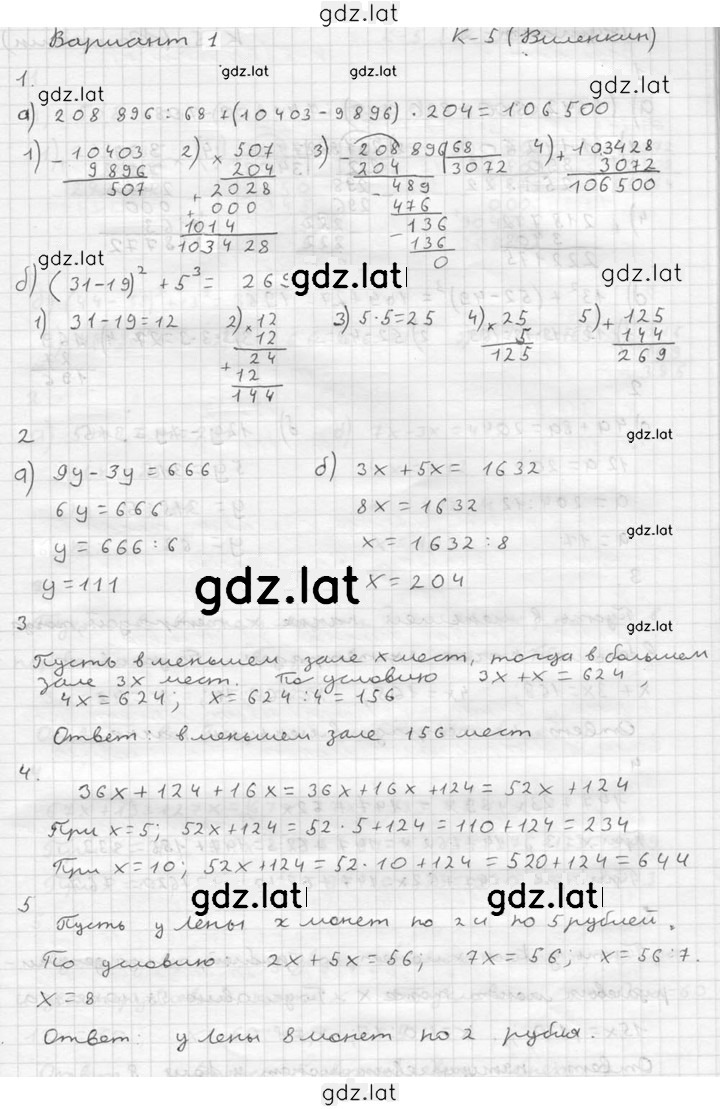 gdz.lat
Вариант 1 К-5 (Виленкин)
gdz.lat gdz.lat gdz.lat
1.
gdz.lat
а) 208 896 : 68 + (10 403 - 9 896) · 204 = 106 500
1) - 10403 2) × 507 3) - 208 896 | 68 4) + 103428
9 896 204 204 3072 3072
507 2028 - 489 106500
+ 000 476
1014 - 136
103428 136
0
gdz.lat gdz.lat gdz.lat
б) (31-19)² + 5³ = 269
1) 31-19=12 2) × 12 3) 5·5=25 4) × 25 5) + 125
12 5 144
+ 24 125 269
12
144
2 gdz.lat
а) 9у - 3у = 666 б) 3х + 5х = 1632
6у = 666 8х = 1632
gdz.lat
у = 666 : 6 х = 1632 : 8
у = 111 gdz.lat х = 204
3 gdz.lat
Пусть в меньшем зале х мест, тогда в большем
зале 3х мест. По условию 3х + х = 624,
4х = 624; х = 624 : 4 = 156
Ответ: в меньшем зале 156 мест
4.
36х + 124 + 16х = 36х + 16х + 124 = 52х + 124
При х=5; 52х+124 = 52 · 5 + 124 = 110 + 124 = 234
При х=10; 52х+124 = 52 · 10 + 124 = 520 + 124 = 644
5 gdz.lat gdz.lat
Пусть у Лены х монет по 2 и по 5 рублей.
По условию 2х + 5х = 56; 7х = 56; х = 56 : 7.
х = 8
Ответ: у Лены 8 монет по 2 рубля.
gdz.lat